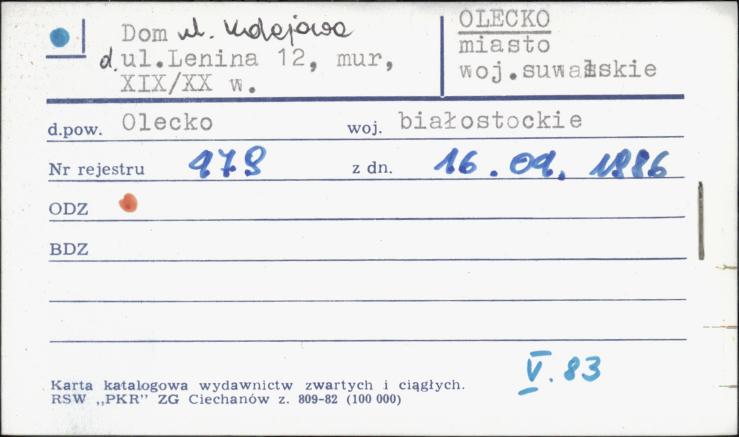 Dom ul. Kolejowa
d.ul.Lenina 12, mur,
XIX/XX w.
OLECKO
miasto
woj.suwalskie
d.pow. Olecko woj. białostockie
Nr rejestru 479 z dn. 16.09.1986
ODZ
BDZ
V.83
Karta katalogowa wydawnictw zwartych i ciągłych.
RSW „PKR” ZG Ciechanów z. 809-82 (100 000)